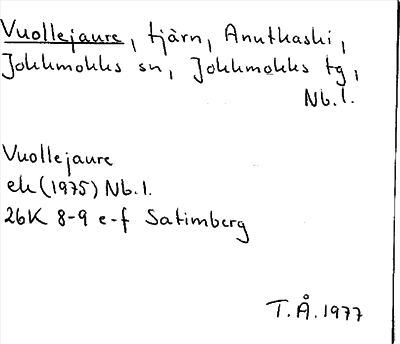 Vuollejaure, tjärn, Anutkaski,
Jokkmokks sn, Jokkmokks tg,
Nb.l.
Vuollejaure
ek(1975) Nb.l.
26K 8-9 e-f Satimberg
T.Å.1977